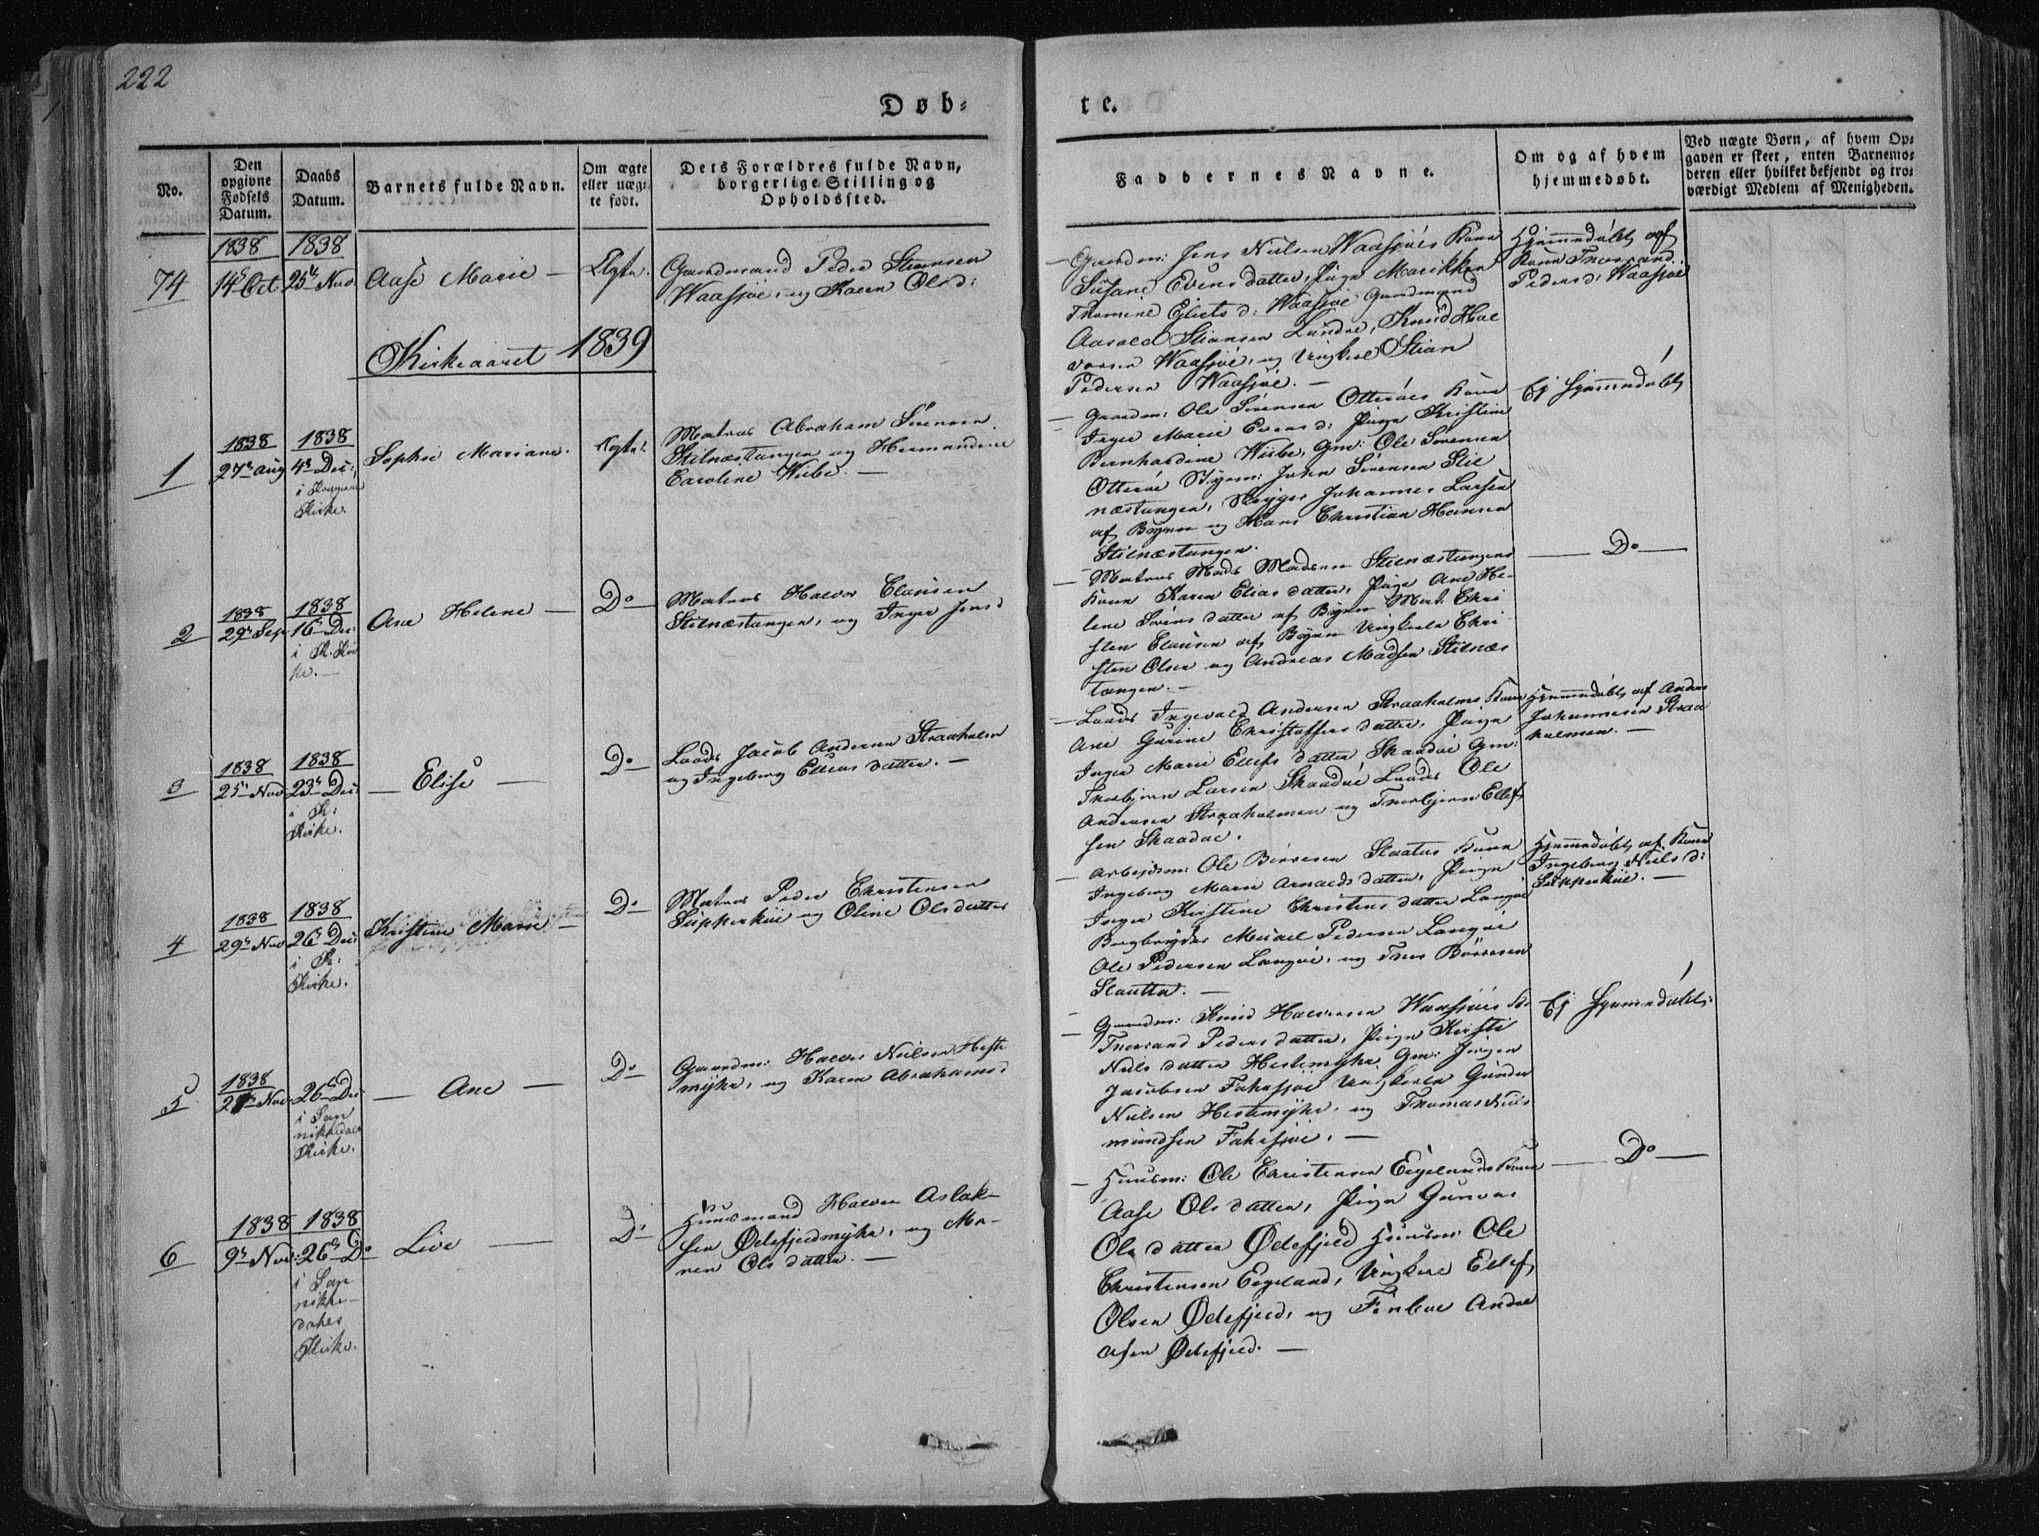 222
Døb-
te.
No.
Den
opgivne
Fødsels
Datum.
Daabs
Datum.
Barnets fulde Navn.
Om ægte
eller uæg-
te født.
Dets Forældres fulde Navn,
borgerlige Stilling og
Opholdssted.
Faddernes Navne.
Om og af hvem
hjemmedøbt.
Ved uægte Børn, af hvem Op-
gaven er skeet, enten Barnemo-
deren eller hvilket bekjendt og tro-
værdigt Medlem af Menigheden.
74
1838
14de Oct
1838
25de Nov.
Aase Marie —
Ægte.
Gaardmand Peder Stiansen
Waasjøe, og Karen Olsd:
— Gaardm: Jens Nielsen Waasjøes Kone
Susane Evensdatter, Pige Marikken
Thomine Ejlertsd: Waasjøe Gaardmand
Aasold Stiansen Lundre, Knud Hal
vorsen Waasjøe, og Ungkarl Stian
Pedersen Waasjøe. —
Hjemmedøbt af
Kone Thorrand
Pedersd: Waasjøe
Kirkeaaret 1839
1
1838
27de Aug
1838
4de Dec:
i Kragerøe
Kirke.
Sophie Mariane.
Ægte.
Matros Abraham Sørensen
Stilnæstangen og Hermandine
Caroline Wibe. —
— Gaardm: Ole Sørensen Otterøes Kone
Inger Marie Evensd: Pige Kristine
Bernhardine Wiibe, Gm: Ole Sørensen
Otterøe Bym: John Sørensen Stil
næstangen, Skipper Johannes Larsen
af Byen og Hans Christian Hansen
Stilnæstangen.
Ej Hjemmedøbt
2
1838
29de Sep
1838
16de Dec:
i K. Kir
ke. —
Ane Helene —
Do
Matros Halvor Clausen
Stilnæstangen, og Inger Jensd
— Matros Mads Madsen Stilnæstangens
Kone Karen Eliasdatter, Pige Ane He-
lene Sørensdatter af Byen Mat. Chri
sten Clausen af Byen Ungkarle Chri-
sten Olsen og Andreas Madsen Stilnæs
tangen. —
— Do —
3
1838
25de Nov
1838
23de Dec:
i K:
Kirke.
— Elise —
Do
Lods Jacob Andersen Straaholmen
og Ingeborg Ellevsdatter. —
— Lods Ingevald Andersen Straaholmens Kone
Ane Gurine Christoffersdatter, Pige
Inger Marie Ellefsdatter Skaadøe Gm:
Thorbjørn Larsen Skaadøe Lods Ole
Andersen Straaholmen og Thorbjørn Ellef
sen Skaadøe.
Hjemmedøbt af Anders
Johannesen Straa
holmen. —
4
1838
29de Nov
1838
26de Dec:
i K:
Kirke.
Kristine Marie —
Do
Matros Peder Christensen
Sipperkiie og Oline Olsdatter
— Arbejdsm: Ole Børresen Slaatas Kone
Ingeborg Marie Arnoldsdatter, Pige
Inger Kirstine Christensdatter Langøe
Bergbryder Mikael Pedersen Langøe
Ole Pedersen Langøe, og Thor Børresen
Slaatta. —
Hjemmedøbt af Kone
Ingeborg Nielsd:
Sipperkiie. —
5
1838
21de Nov.
26de Dec
i San
nikkedals
Kirke.
— Ane —
Do
Gaardm: Halvor Nielsen Heste
myhr, og Karen Abrahamsd
— Gaardm: Knud Halvorsen Waasjøes Ko
Thorrand Pedersdatter, Pige Kirsti
Nielsdatter Hestemyhr, Gm: Jørgen
Jacobsen Farsjøe Ungkarle Gunder
Nielsen Hestemyhr, og Thomas Niels
mundsen Farsjøe. —
Ej Hjemmedøbt:
6
1838
9de Nov:
1838
26de Do
i San
nikke-
dahls
Kirke.
Live —
Do
Huusmand Halvor Aslak-
sen Ødefjeldmyhr, og Ma-
ren Olsdatter. —
— Huusm: Ole Christensen Eegelands Kone
Aase Olsdatter, Pige Gunvor
Olsdatter Ødefjeld, Huusm: Ole
Christensen Eegeland, Ungkarl Ellef
Olsen Ødefjeld, og Finboe Andre
asen Ødefjeld. —
— Do —